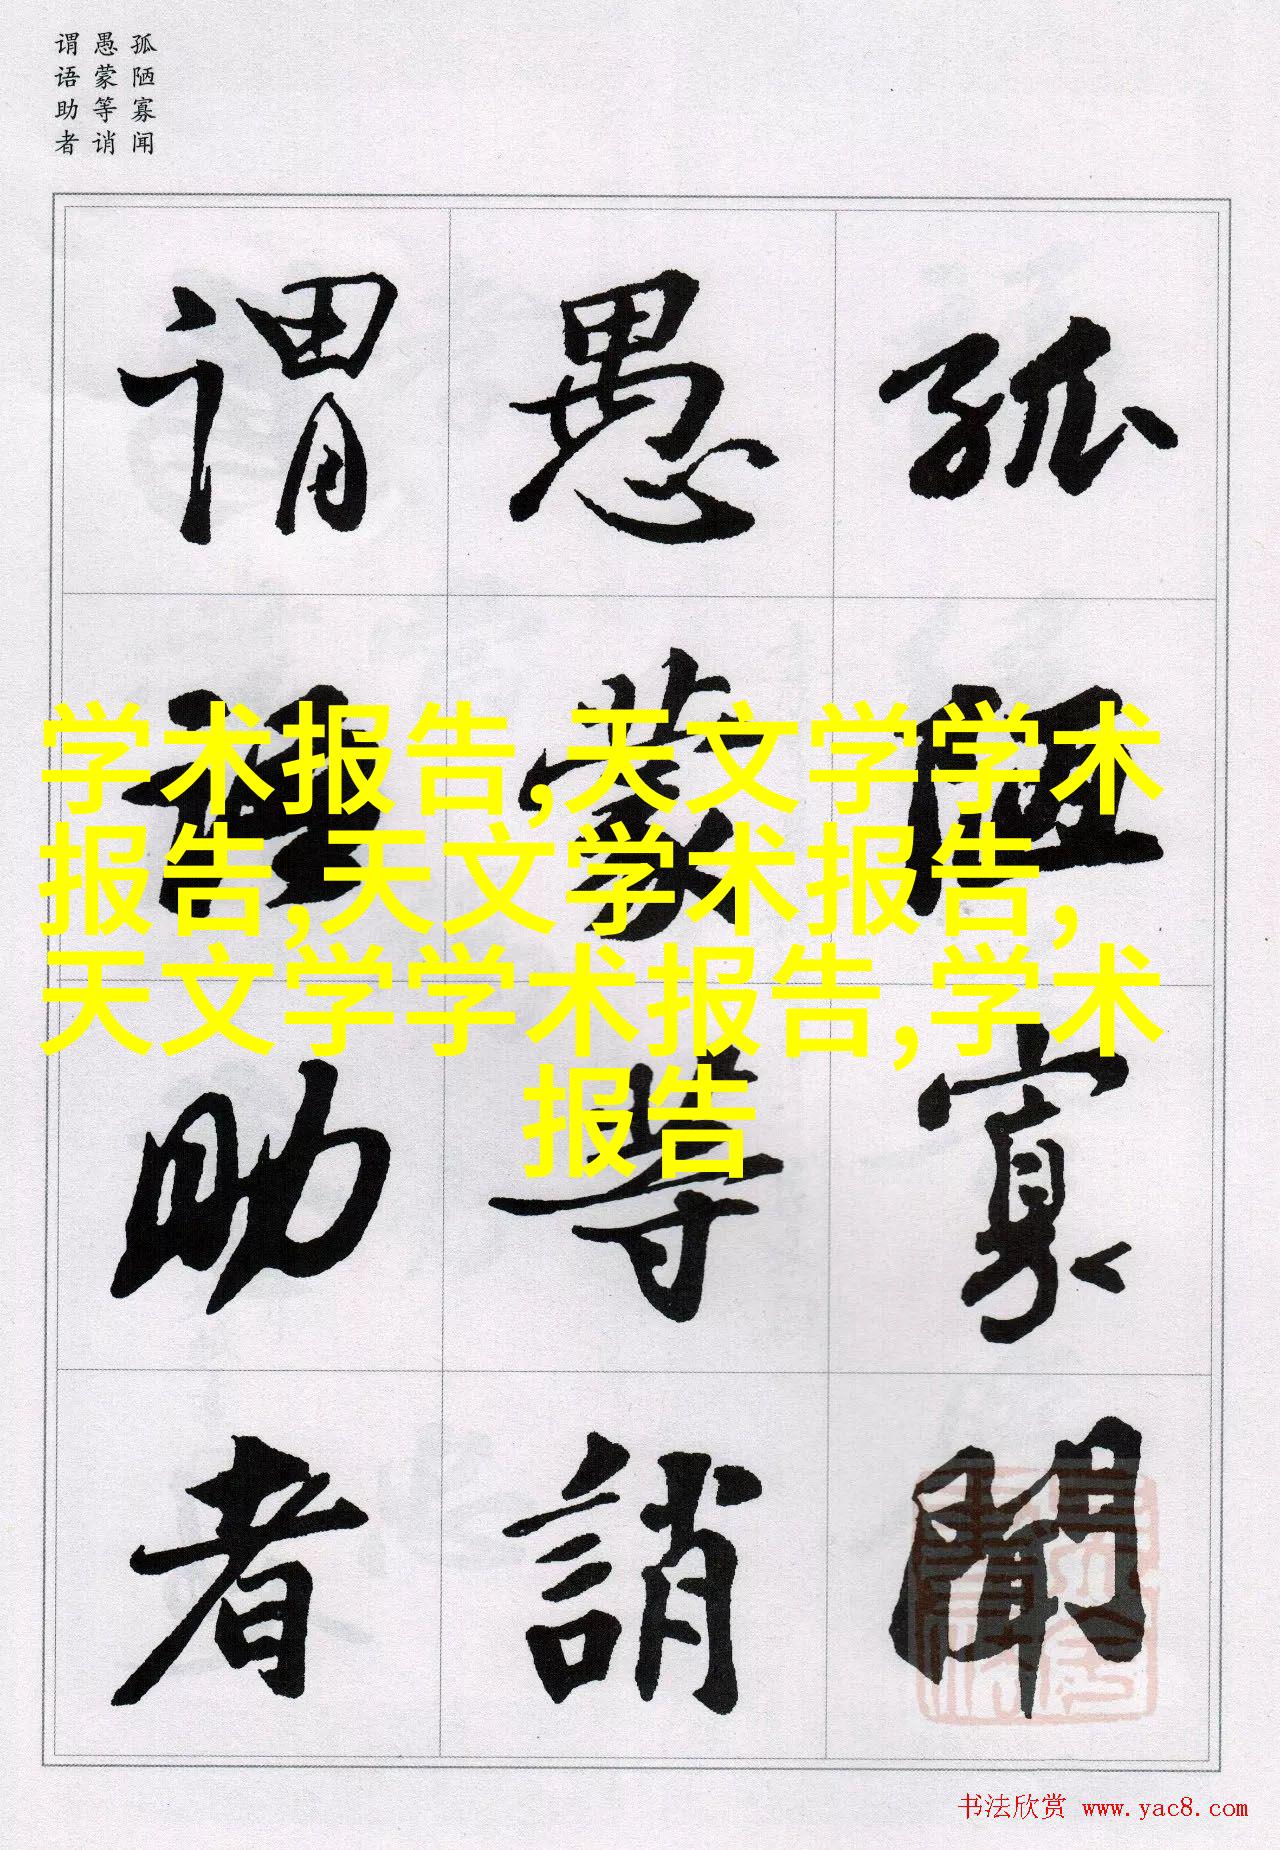 孤陋寡闻
愚蒙等诮
谓语助者
孤陋寡闻
愚蒙等誚
谓语助者
学术报告,天文学学术
报告,天文学术报告,
天文学学术报告,学术
报告
书法欣赏 www.yac8.com